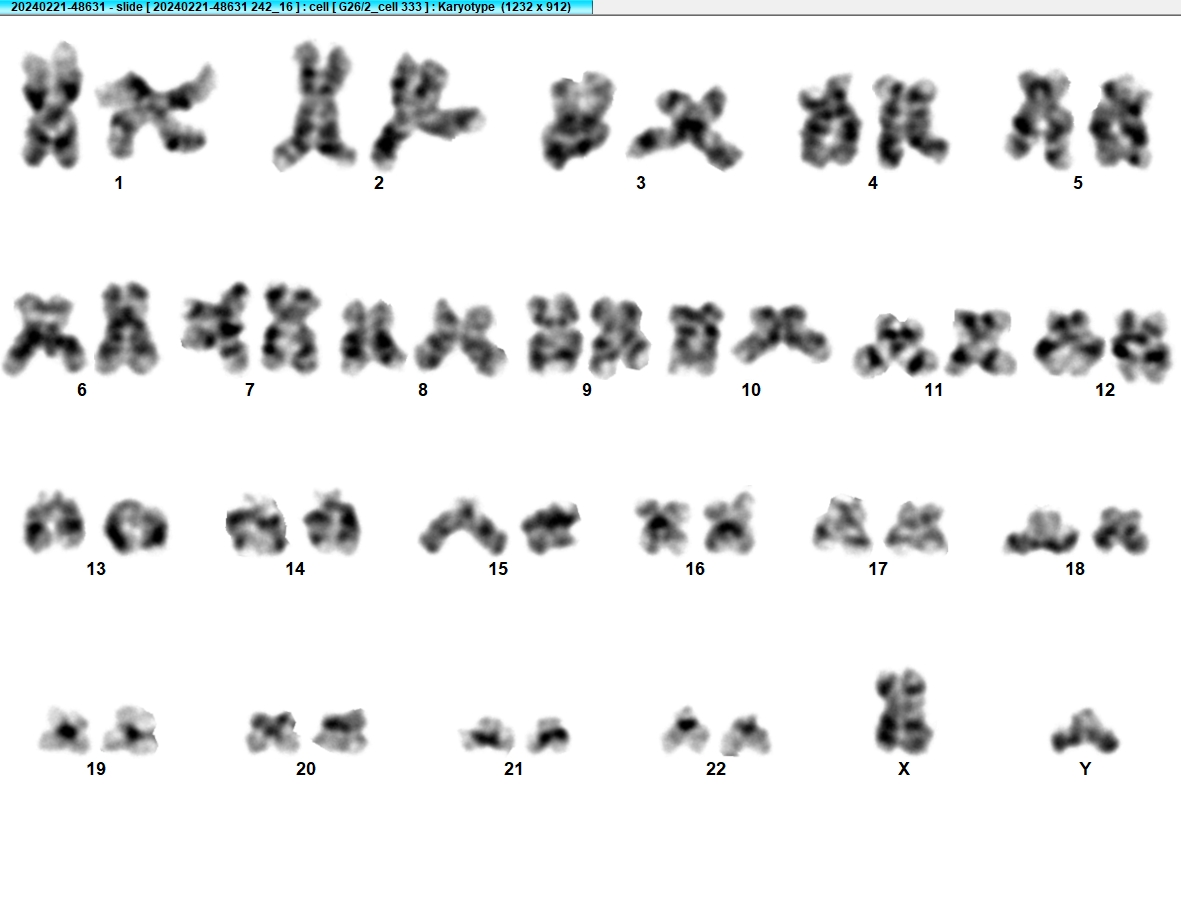 20240221-48631 - slide [ 20240221-48631 242_16 ] : cell [ G26/2_cell 333 ] : Karyotype (1232 x 912)
1 2 3 4 5
6 7 8 9 10 11 12
13 14 15 16 17 18
19 20 21 22 X Y